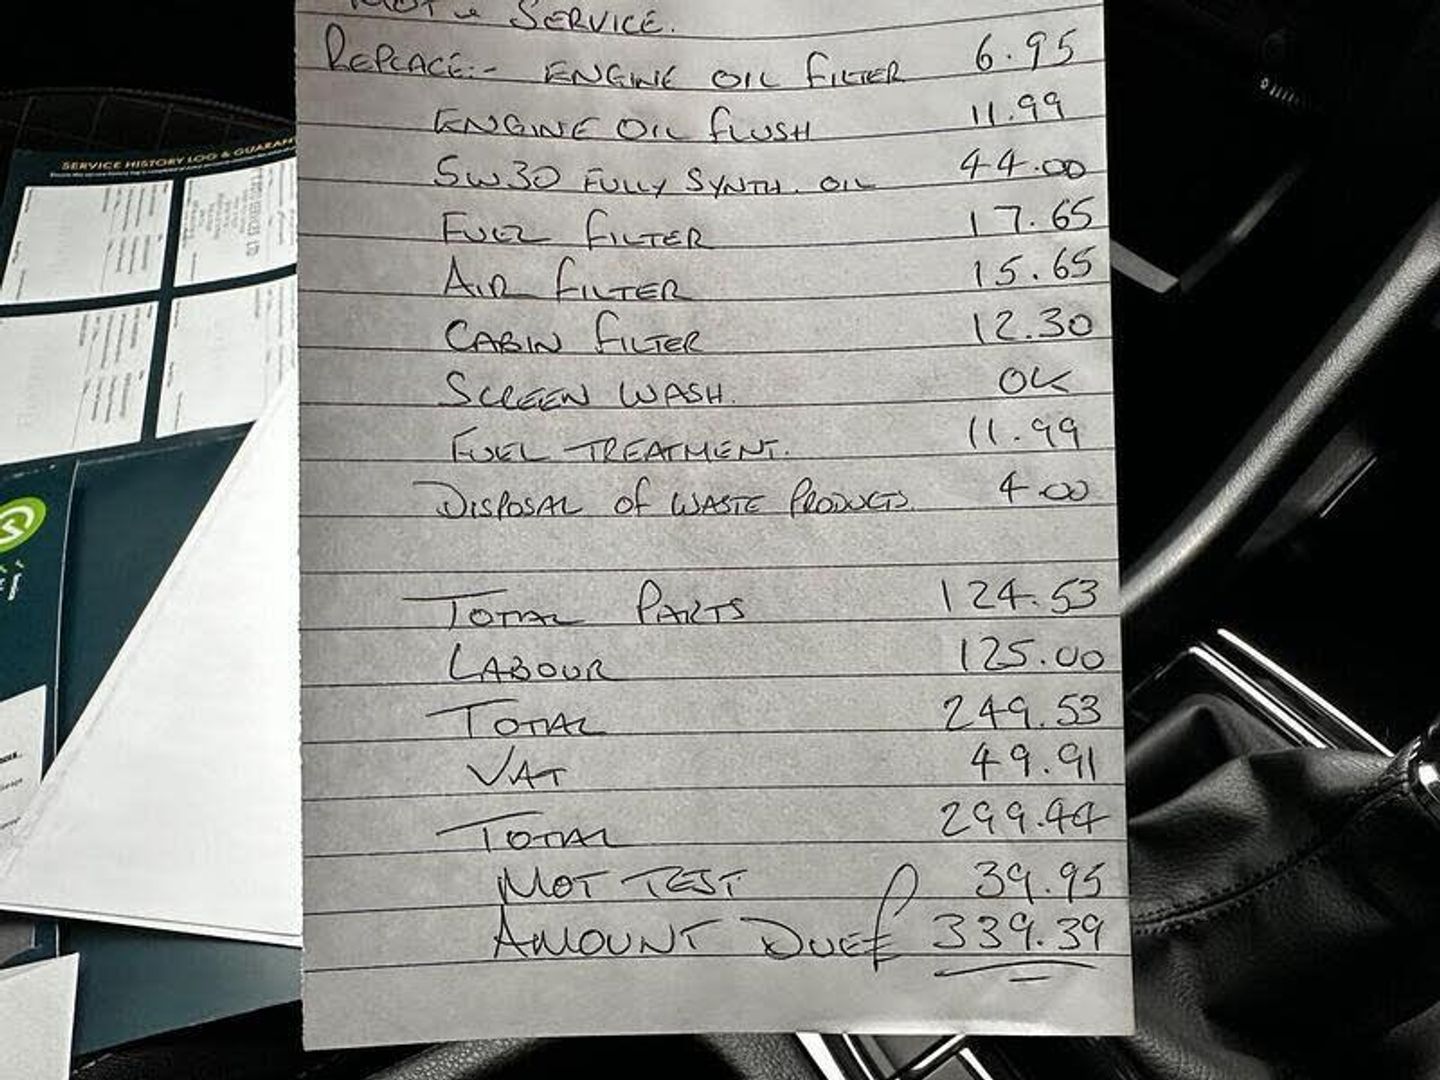 MOT & SERVICE.
REPLACE:- ENGINE OIL FILTER 6.95
ENGINE OIL FLUSH 11.99
5W30 FULLY SYNTH. OIL 44.00
FUEL FILTER 17.65
AIR FILTER 15.65
CABIN FILTER 12.30
SCREEN WASH. OK
FUEL TREATMENT. 11.99
DISPOSAL OF WASTE PRODUCTS. 4.00
TOTAL PARTS 124.53
LABOUR 125.00
TOTAL 249.53
VAT 49.91
TOTAL 299.44
MOT TEST 39.95
AMOUNT DUE £ 339.39
SERVICE HISTORY LOG & GUARAN